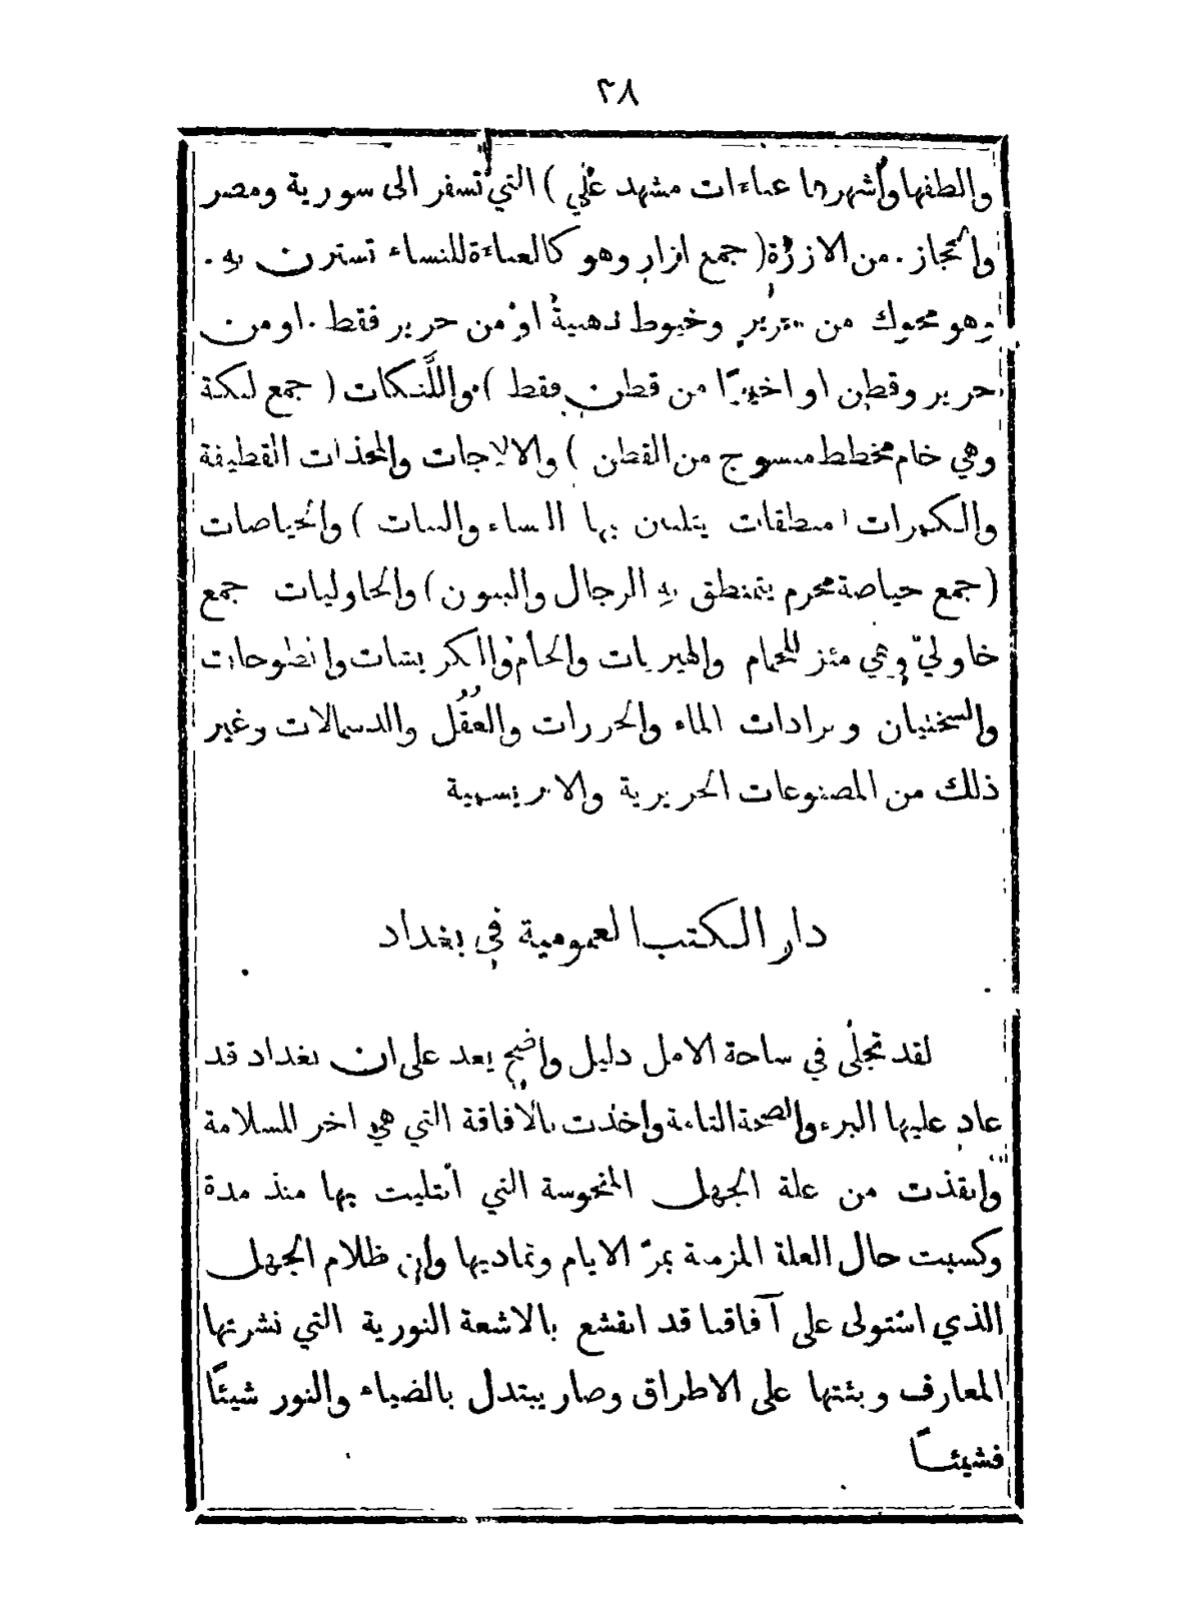 ٢٨
والطفها وأشهرها عباءات مشهد علي ) التي تسفر الى سورية ومصر
والحجاز . من الازرة ( جمع ازار وهو كالعباءة للنساء تسترن به .
وهو محوك من وخيوط ذهبية او من حرير فقط . او من
حرير وقطن او اخيرًا من قطن فقط ) . واللَّنكات ( جمع لنكة
وهي خام مخطط منسوج من القطن ) والالاجات والمخدات القطيفة
والكمرات ( منطقات يتلبن بها النساء والبنات ) والحياصات
( جمع حياصة محرم يتمنطق به الرجال والبنون ) والخاوليات جمع
خاوليّ وهي مئزر للحمام والهبريات والخام والكريشات
والسختيان وبرادات الماء والحبرات والعُقُل والدسمالات وغير
ذلك من المصنوعات الحريرية والابريسمية
دار الكتب العمومية في بغداد
لقد تجلى في ساحة الامل دليل واضح يعد على ان بغداد قد
عاد عليها البرء والصحة التامة واخذت بالافاقة التي هي اخر للسلامة
وانقذت من علة الجهل المنحوسة التي ابتليت بها منذ مدة
وكسبت حال العلة المزمنة بمرّ الايام وتماديها وان ظلام الجهل
الذي استولى على آفاقنا قد انقشع بالاشعة النورية التي نشرتها
المعارف وبثتها على الاطراق وصار يبتدل بالضياء والنور شيئًا
فشيئًا